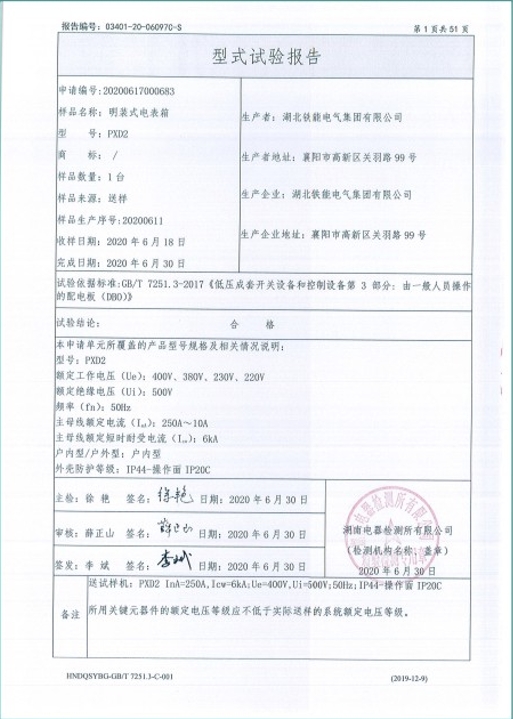 报告编号：03401-20-06097C-S
第 1 页共 51 页
型式试验报告
申请编号:20200617000683
样品名称：明装式电表箱
型　　号：PXD2
商　　标：/
样品数量：1 台
样品来源：送样
样品生产序号:20200611
收样日期：2020 年 6 月 18 日
完成日期：2020 年 6 月 30 日
生产者：湖北铁能电气集团有限公司
生产者地址：襄阳市高新区关羽路 99 号
生产企业：湖北铁能电气集团有限公司
生产企业地址：襄阳市高新区关羽路 99 号
试验依据标准:GB/T 7251.3-2017《低压成套开关设备和控制设备第 3 部分：由一般人员操作
的配电板（DBO）》
试验结论：　　合　格
本申请单元所覆盖的产品型号规格及相关情况说明：
型号：PXD2
额定工作电压（Ue）：400V、380V、230V、220V
额定绝缘电压（Ui）：500V
频率（fn）：50Hz
主母线额定电流（InA）：250A～10A
主母线额定短时耐受电流（Icw）：6kA
户内型/户外型：户内型
外壳防护等级：IP44-操作面 IP20C
主检：徐 艳　签名：徐艳　日期：2020 年 6 月 30 日
审核：薛正山　签名：薛正山　日期：2020 年 6 月 30 日
签发：李 斌　签名：李斌　日期：2020 年 6 月 30 日
湖南电器检测所有限公司
（检测机构名称、盖章）
2020 年 6 月 30 日
备注
送试样机：PXD2 InA=250A,Icw=6kA;Ue=400V,Ui=500V;50Hz;IP44-操作面 IP20C
所用关键元器件的额定电压等级应不低于实际送样的系统额定电压等级。
HNDQSYBG-GB/T 7251.3-C-001
(2019-12-9)